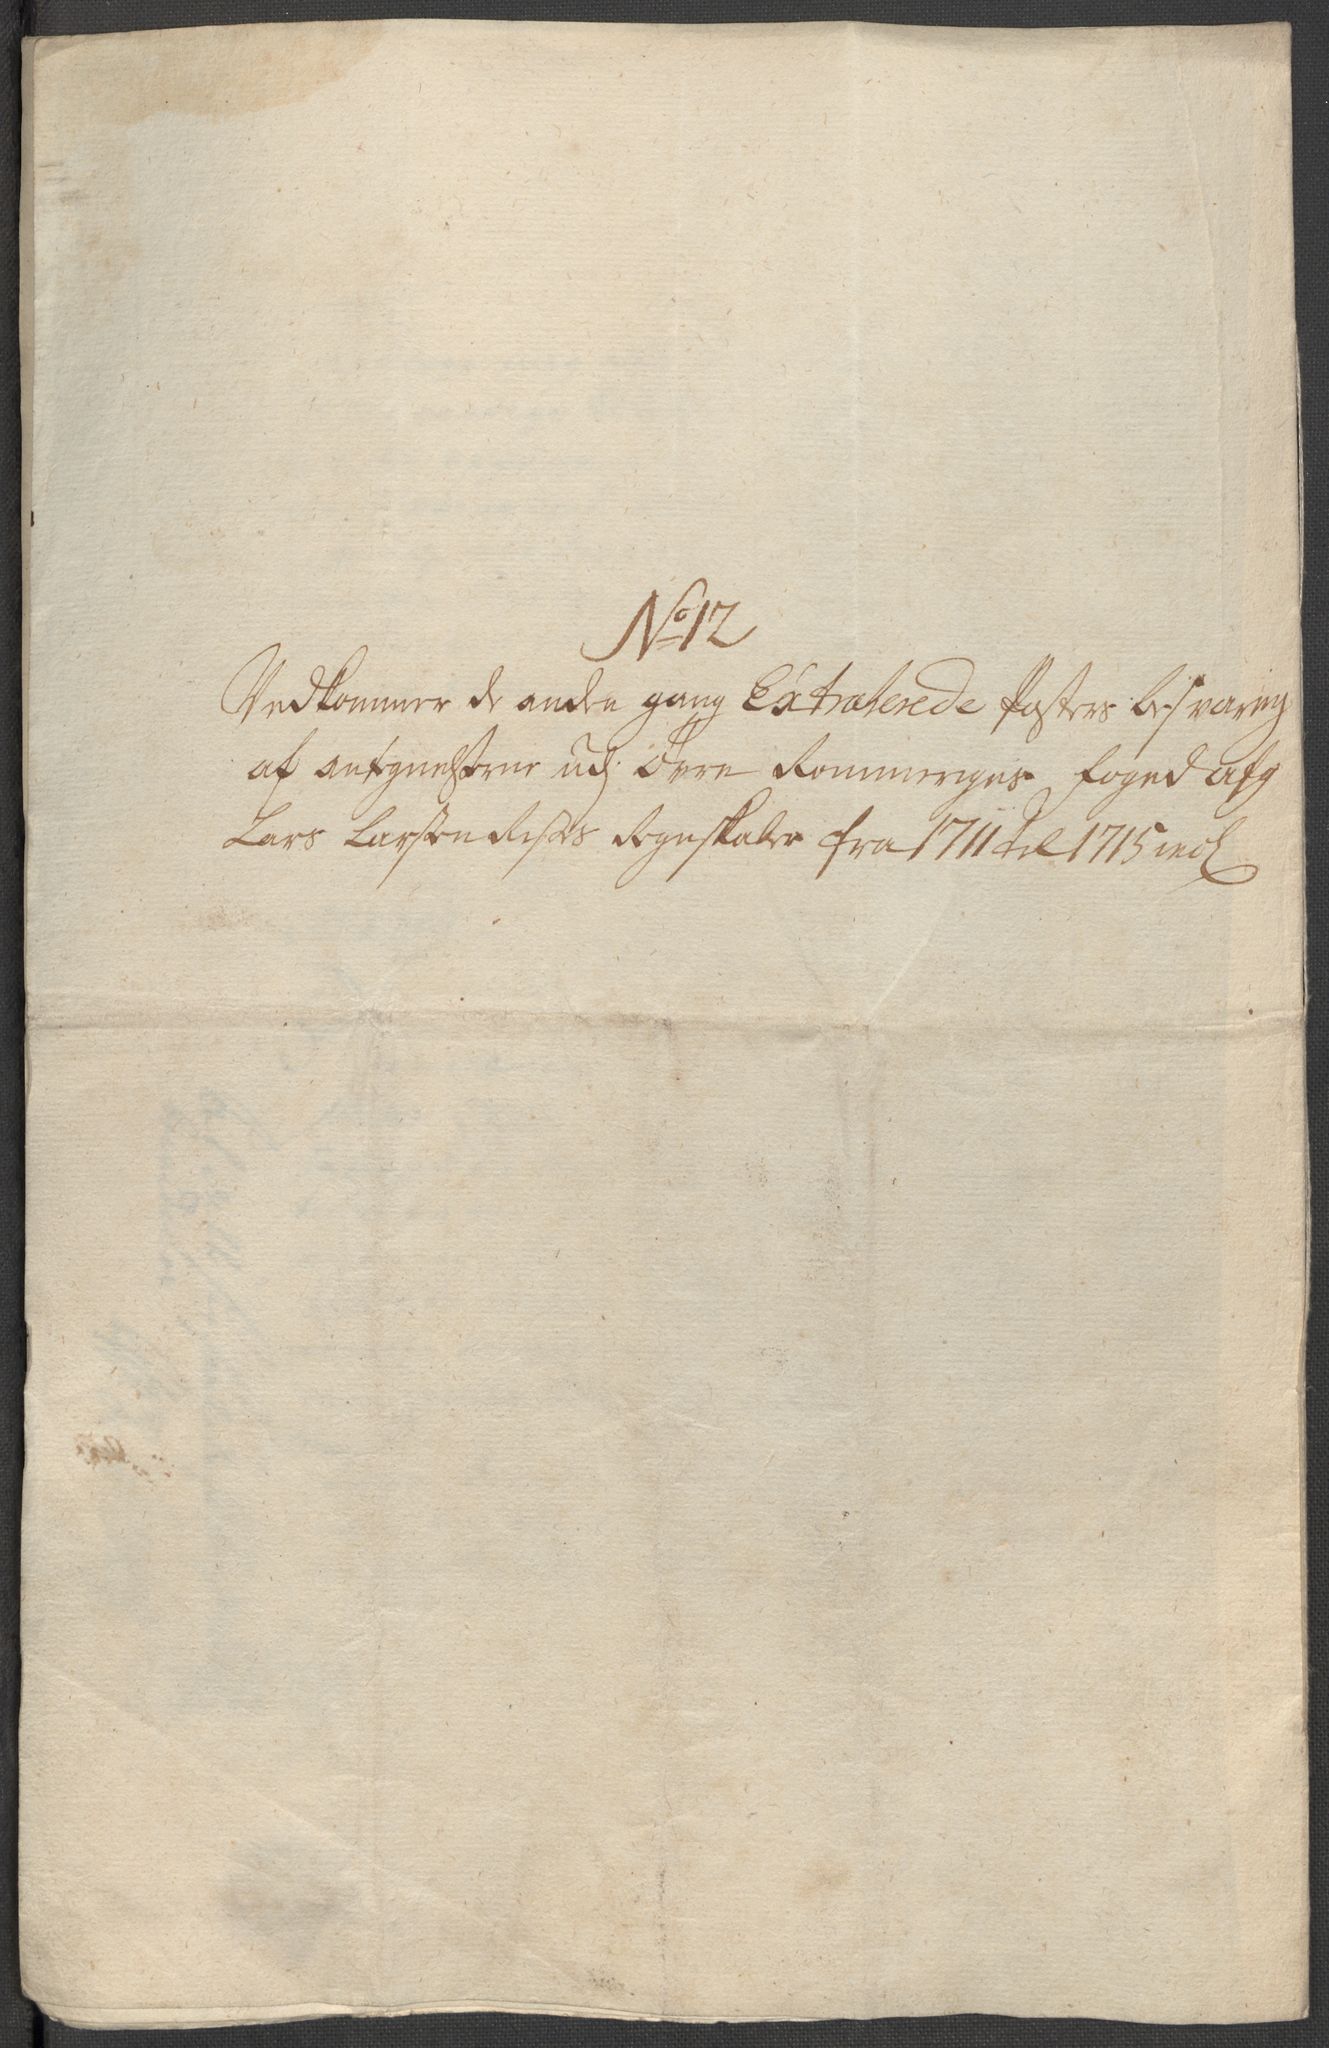 No 12
Vedkommer de anden gang Extraherede Posters besvaring
af antegnelserne udj Øvre Rommeriges foged afg
Lars Larsøn Rists Regnskaber fra 1711 til 1715 incl